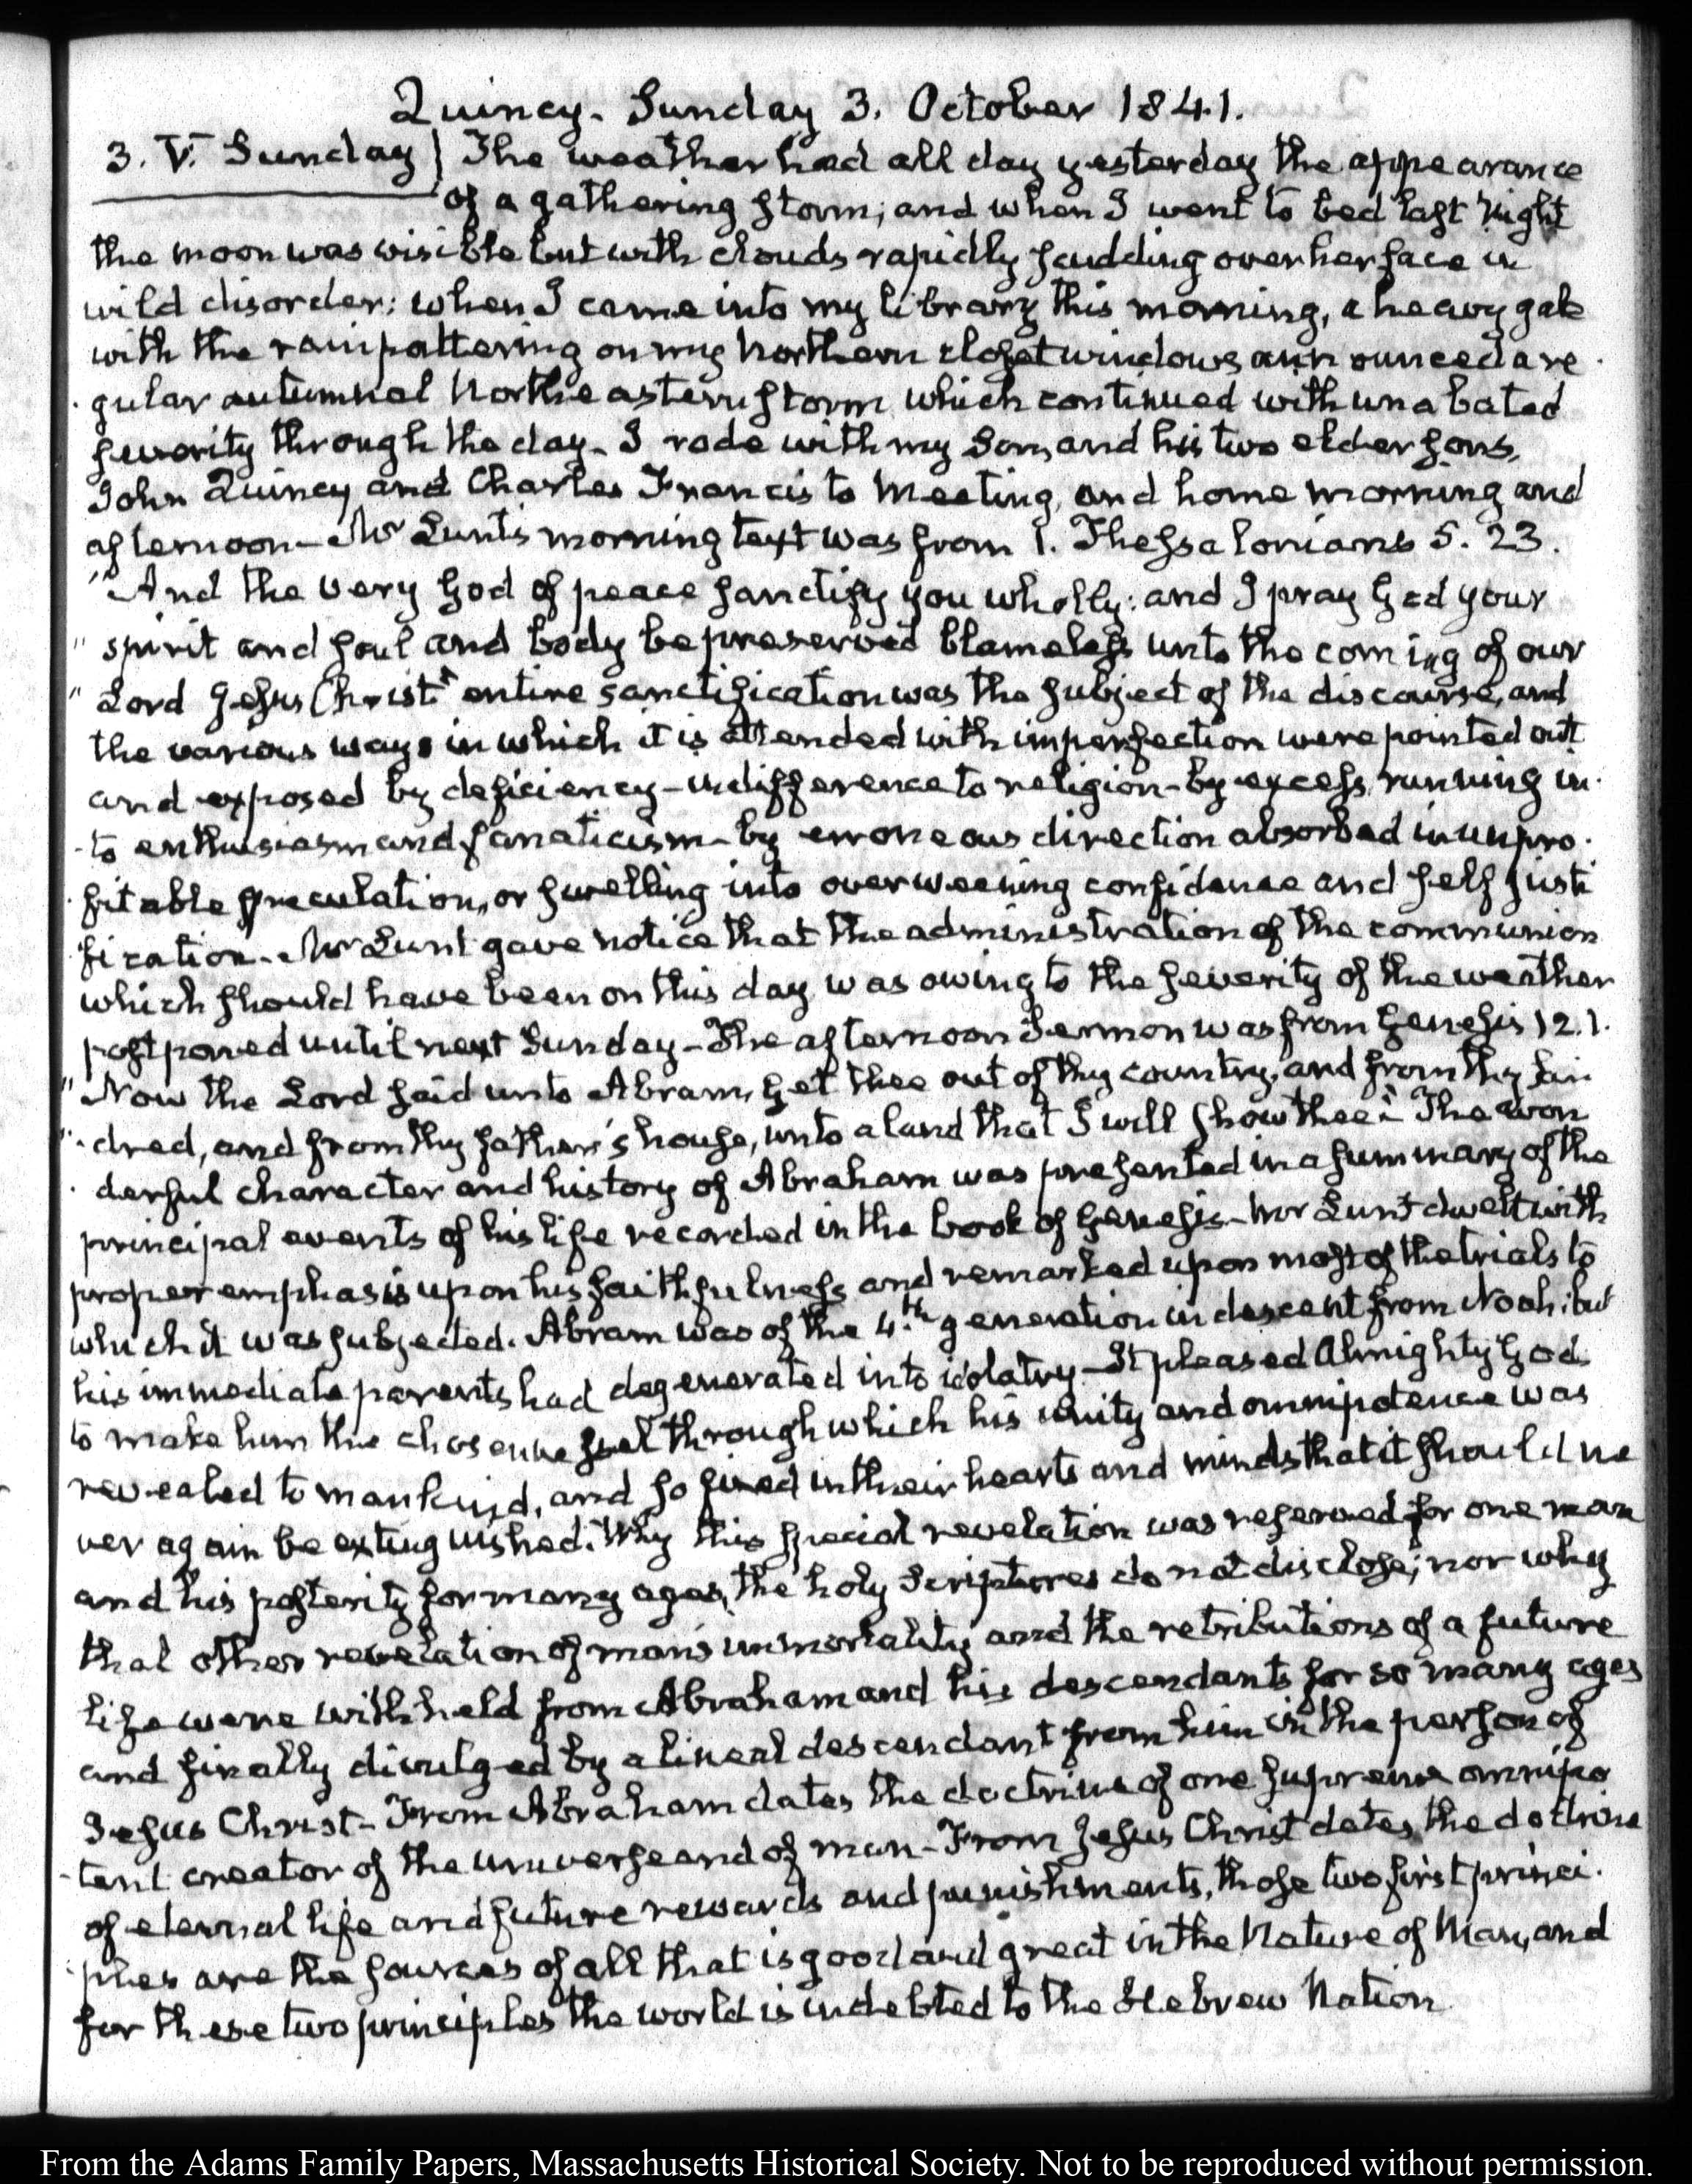 Quincy. Sunday 3. October 1841.
3. V. Sunday } The weather had all day yesterday the appearance
of a gathering storm; and when I went to bed last Night
the moon was visible but with clouds rapidly scudding over her face in
wild disorder: when I came into my library this morning, a heavy gale
with the rain pattering on my Northern closet windows announced a re
gular autumnal Northeastern storm which continued with unabated
severity through the day. I rode with my Son, and his two elder sons,
John Quincy and Charles Francis to Meeting, and home morning and
afternoon - Mr Lunt's morning text was from 1. Thessalonians 5. 23.
"And the very God of peace sanctify you wholly: and I pray God your
" spirit and soul and body be preserved blameless unto the coming of our
" Lord Jesus Christ" entire sanctification was the subject of the discourse, and
the various ways in which it is attended with imperfection were pointed out
and exposed by deficiency - indifference to religion - by excess, running in
to enthusiasm and fanaticism - by erroneous direction absorbed in unpro
fitable speculation, or swelling into overweening confidence and self justi
fication. Mr Lunt gave notice that the administration of the communion
which should have been on this day was owing to the severity of the weather
postponed until next Sunday - The afternoon Sermon was from Genesis 12.1.
" Now the Lord said unto Abram, Get thee out of thy country, and from thy kin
" dred, and from thy father's house, unto a land that I will show thee" The won
derful character and history of Abraham was presented in a summary of the
principal events of his life recorded in the book of Genesis - Mr Lunt dwelt with
proper emphasis upon his faithfulness and remarked upon most of the trials to
which it was subjected. Abram was of the 4.th generation in descent from Noah: but
his immediate parents had degenerated into idolatry - It pleased Almighty God
to make him the chosen vessel through which his unity and omnipotence was
revealed to mankind, and so fixed in their hearts and minds that it should ne
ver again be extinguished. Why this special revelation was reserved for one man
and his posterity for many ages, the holy Scriptures do not disclose; nor why
that other revelation of man's immortality and the retributions of a future
life were withheld from Abraham and his descendants for so many ages
and finally divulged by a lineal descendant from him in the person of
Jesus Christ - From Abraham dates the doctrine of one supreme omnipo
tent creator of the universe and of man - From Jesus Christ dates the doctrine
of eternal life and future rewards and punishments, those two first princi
ples are the sources of all that is good and great in the Nature of Man, and
for these two principles the world is indebted to the Hebrew Nation
From the Adams Family Papers, Massachusetts Historical Society. Not to be reproduced without permission.